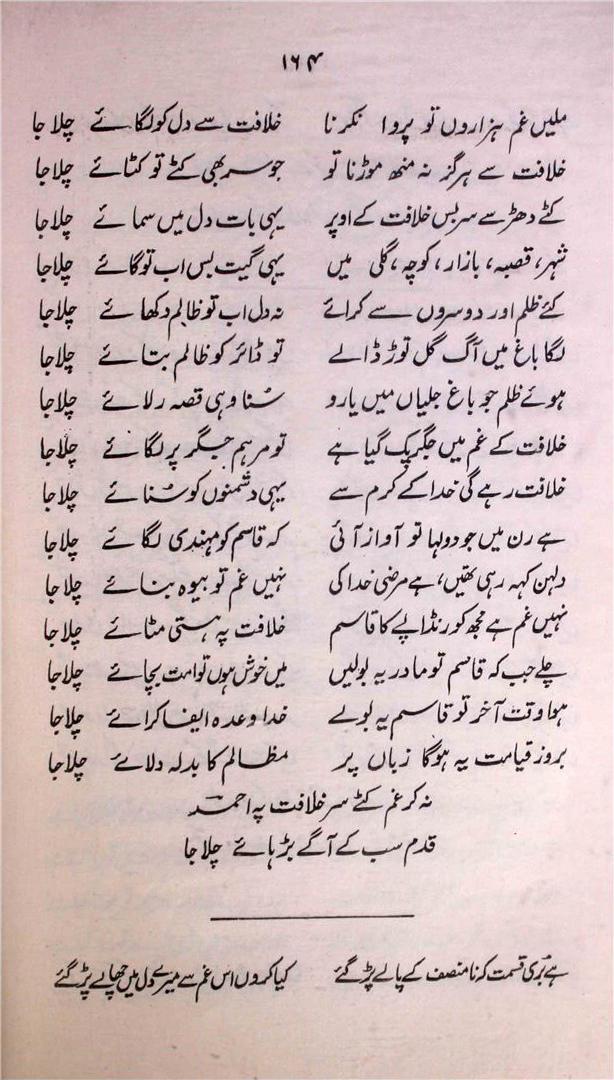 ۱۶۴
ملیں غم ہزاروں تو پروا نکرنا خلافت سے دل کو لگائے چلا جا
خلافت سے ہرگز نہ منھ موڑنا تو جو سر بھی کٹے تو کٹائے چلا جا
کٹے دھڑ سے سر بس خلافت کے اوپر یہی بات دل میں سمائے چلا جا
شہر، قصبہ، بازار، کوچہ، گلی میں یہی گیت بس اب تو گائے چلا جا
کئے ظلم اور دوسروں سے کرائے نہ دل اب تو ظالم دکھائے چلا جا
لگا باغ میں آگ گل توڑ ڈالے تو ڈائر کو ظالم بتائے چلا جا
ہوئے ظلم جو باغ جلیاں میں یارو سُنا وہی قصہ رلائے چلا جا
خلافت کے غم میں جگر پک گیا ہے تو مرہم جگر پر لگائے چلا جا
خلافت رہے گی خدا کے کرم سے یہی دشمنوں کو سُنائے چلا جا
ہے رن میں جو دولہا تو آواز آئی کہ قاسم کو مہندی لگائے چلا جا
دلہن کہہ رہی تھیں، ہے مرضی خدا کی نہیں غم تو بیوہ بنائے چلا جا
نہیں غم ہے مجھ کو رنڈاپے کا قاسم خلافت پہ ہستی مٹائے چلا جا
چلے جب کہ قاسم تو مادر یہ بولیں میں خوش ہوں تو امت بچائے چلا جا
ہوا وقت آخر تو قاسم یہ بولے خدا وعدہ ایفا کرائے چلا جا
بروز قیامت یہ ہوگا زباں پر مظالم کا بدلہ دلائے چلا جا
نہ کر غم کٹے سر خلافت پہ احمد
قدم سب کے آگے بڑہائے چلا جا
ہے بُری قسمت کہ نا منصف کے پالے پڑ گئے کیا کروں اس غم سے میرے دل میں چھالے پڑ گئے